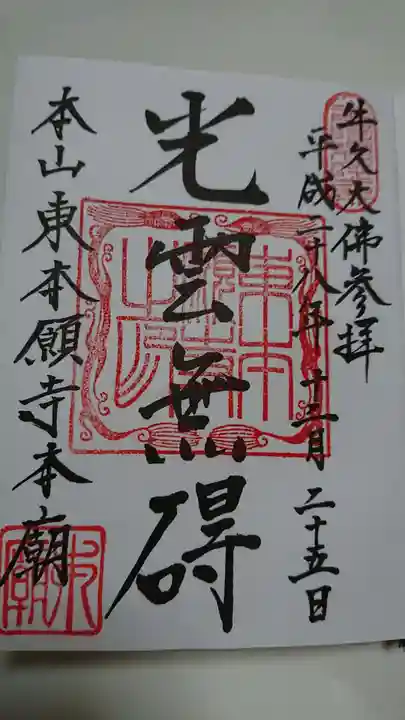 牛久大佛参拝
平成二十八年十二月二十五日
光雲無碍
本山東本願寺本廟